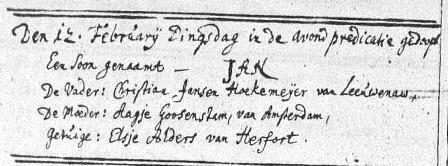 Den 12. February Dingsdag in de avond predicatie gedoopt
Een Soon genaamt — JAN
De Vader: Christian Jansen Hoekemeijer van Leeuwenaw,
De Moeder: Aagje Goosenstam, van Amsterdam,
getuige: Elsje Alders van Herfort.